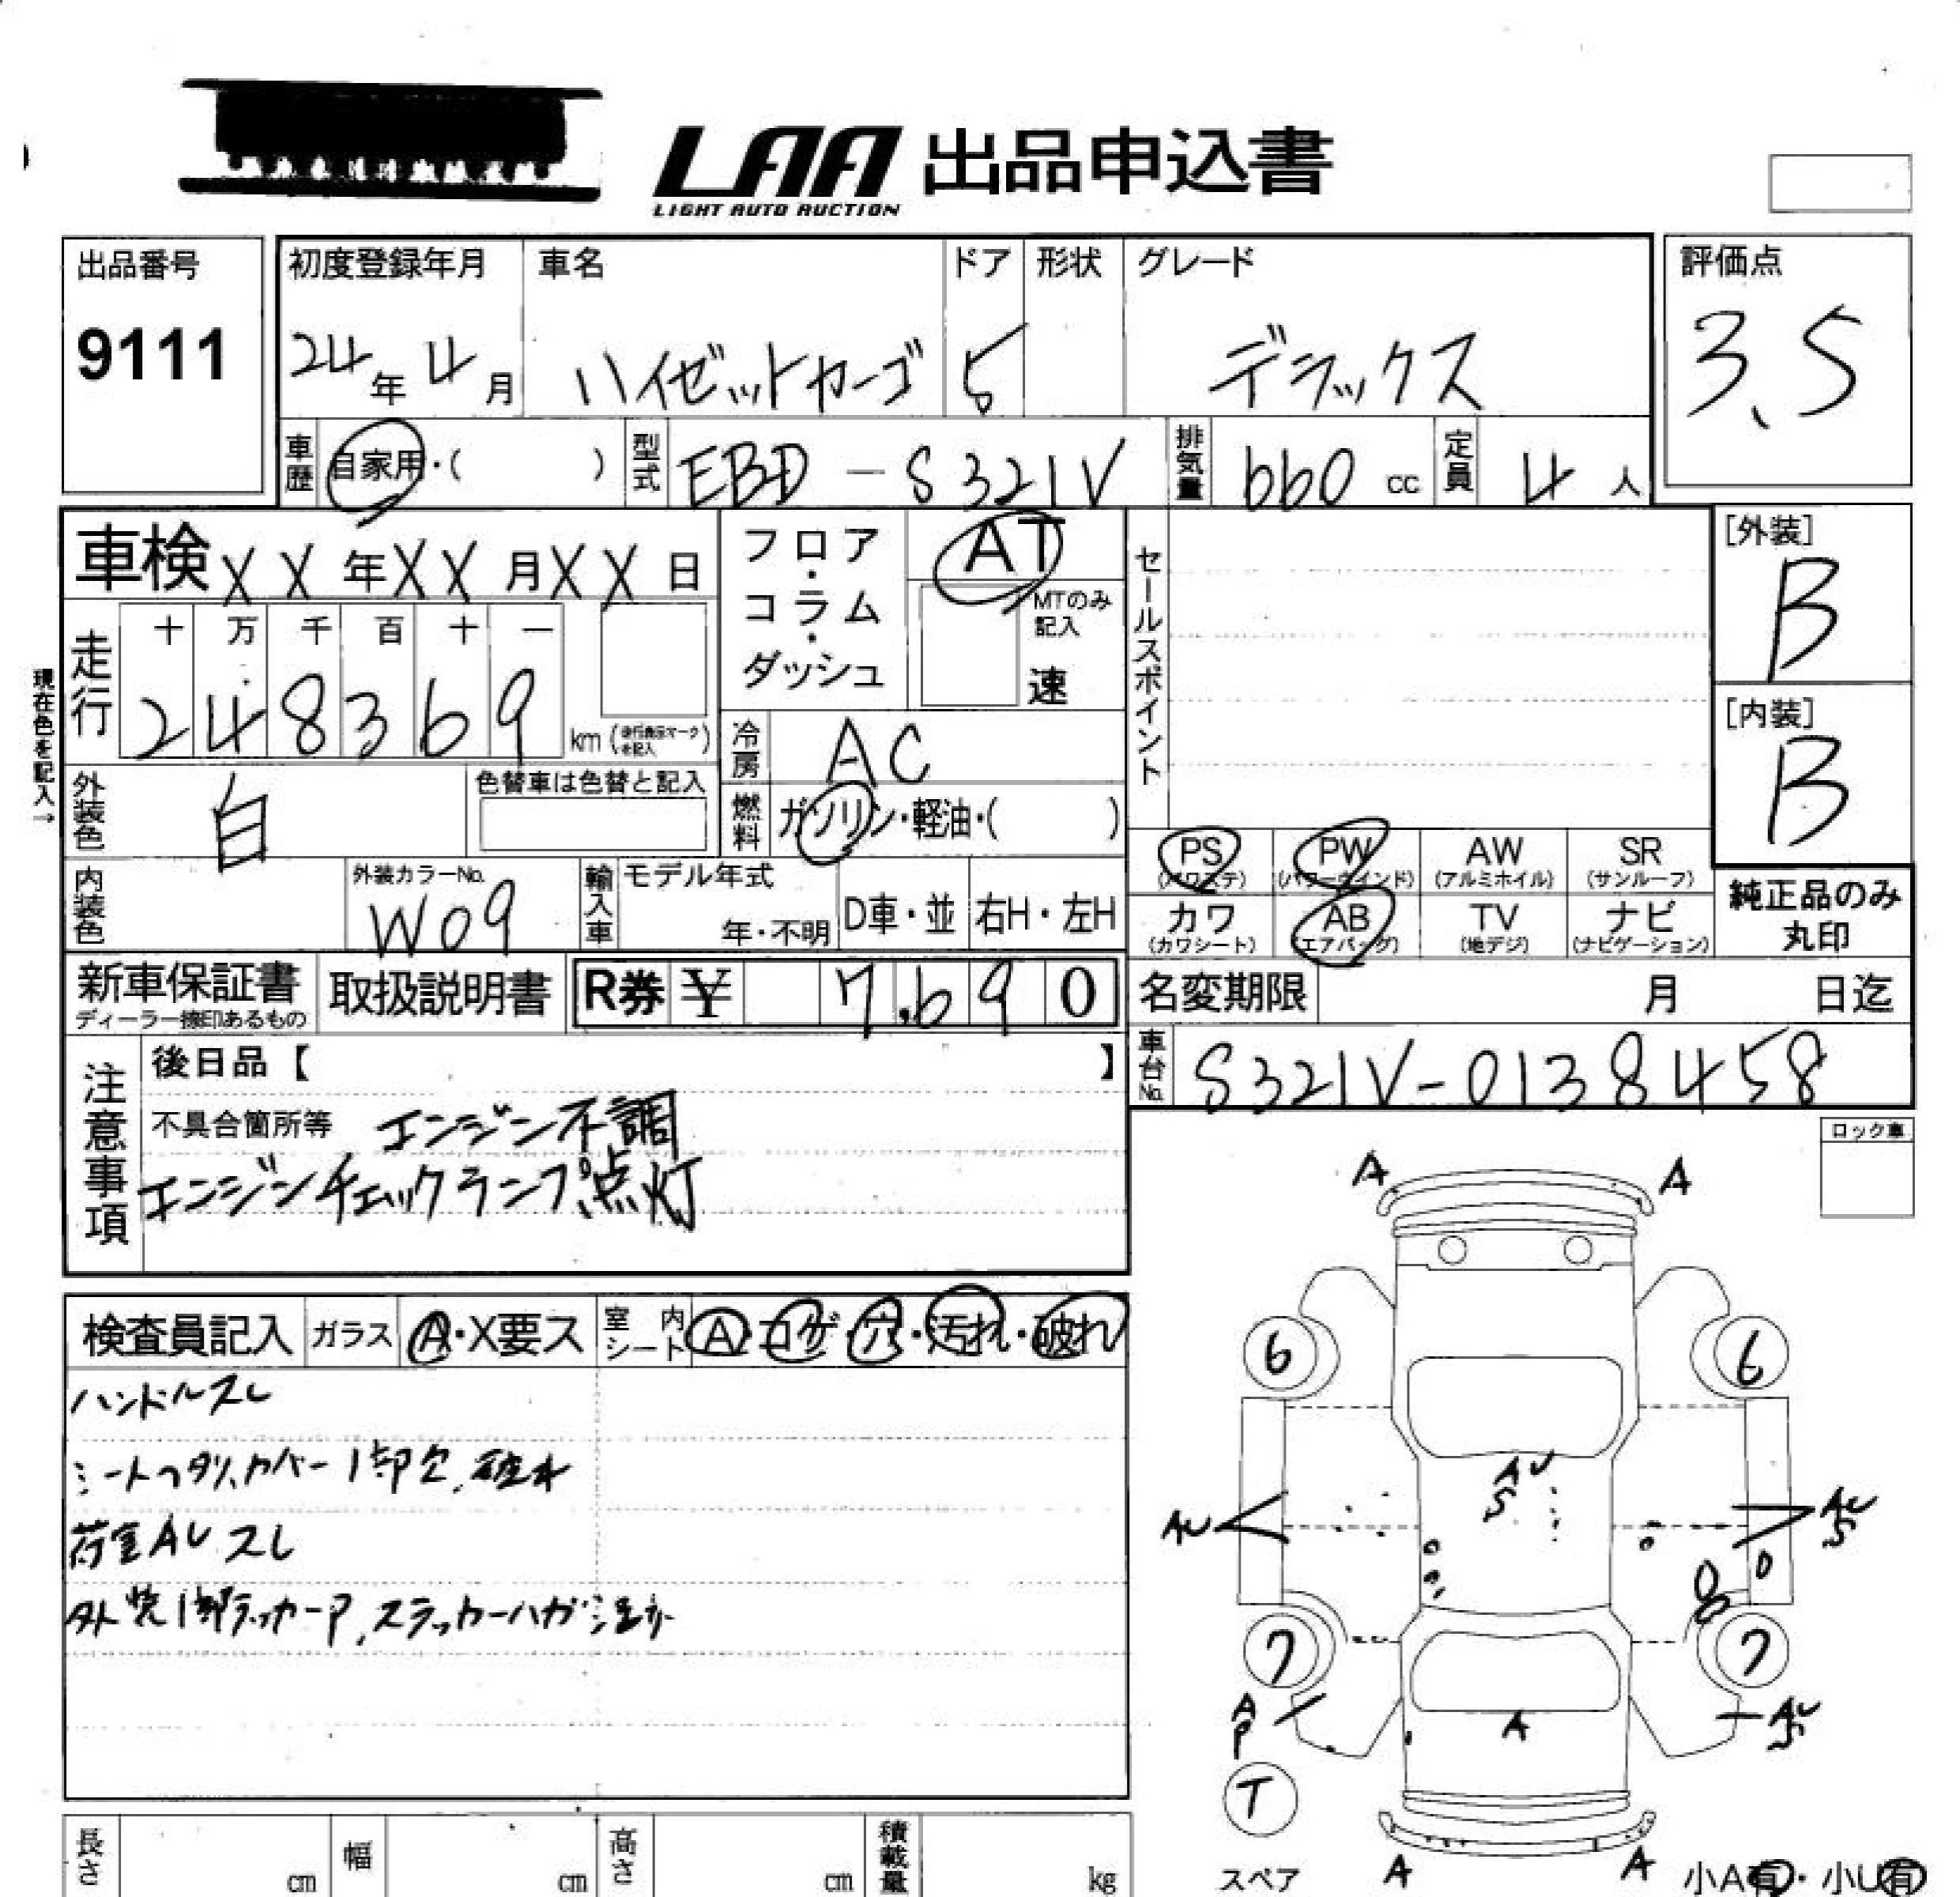 LAA 出品申込書
LIGHT AUTO AUCTION
出品番号
9111
初度登録年月
24年 4月
車名
ハイゼットカーゴ
ドア
5
形状
グレード
デラックス
評価点
3.5
車歴 自家用・( )
型式 EBD-S321V
排気量 660 cc
定員 4 人
車検 XX年XX月XX日
フロア・コラム・ダッシュ
AT
MTのみ記入
速
セールスポイント
[外装]
B
[内装]
B
現在色を記入→
走行
十 万 千 百 十 一
2 4 8 3 6 9 km
冷房 AC
外装色 白
色替車は色替と記入
燃料 ガソリン・軽油・( )
内装色
外装カラーNo.
W09
輸入車
モデル年式
年・不明
D車・並 右H・左H
PS (パワステ)
PW (パワーウインド)
AW (アルミホイル)
SR (サンルーフ)
カワ (カワシート)
AB (エアバッグ)
TV (地デジ)
ナビ (ナビゲーション)
純正品のみ
丸印
新車保証書
ディーラー捺印あるもの
取扱説明書
R券 ¥ 7,690
名変期限 月 日迄
車台No. S321V-0138458
注意事項
後日品【 】
不具合箇所等 エンジン不調
エンジンチェックランプ点灯
ロック車
検査員記入
ガラス A・X要ス
室内シート A・コゲ・穴・汚れ・破れ
ハンドルスレ
荷室AUスレ
A A
6 6
AU
S
AU
AU
S
7 7
A
P
A
AU
S
T
スペア
A A
小A有・小U有
長さ cm
幅 cm
高さ cm
積載量 kg